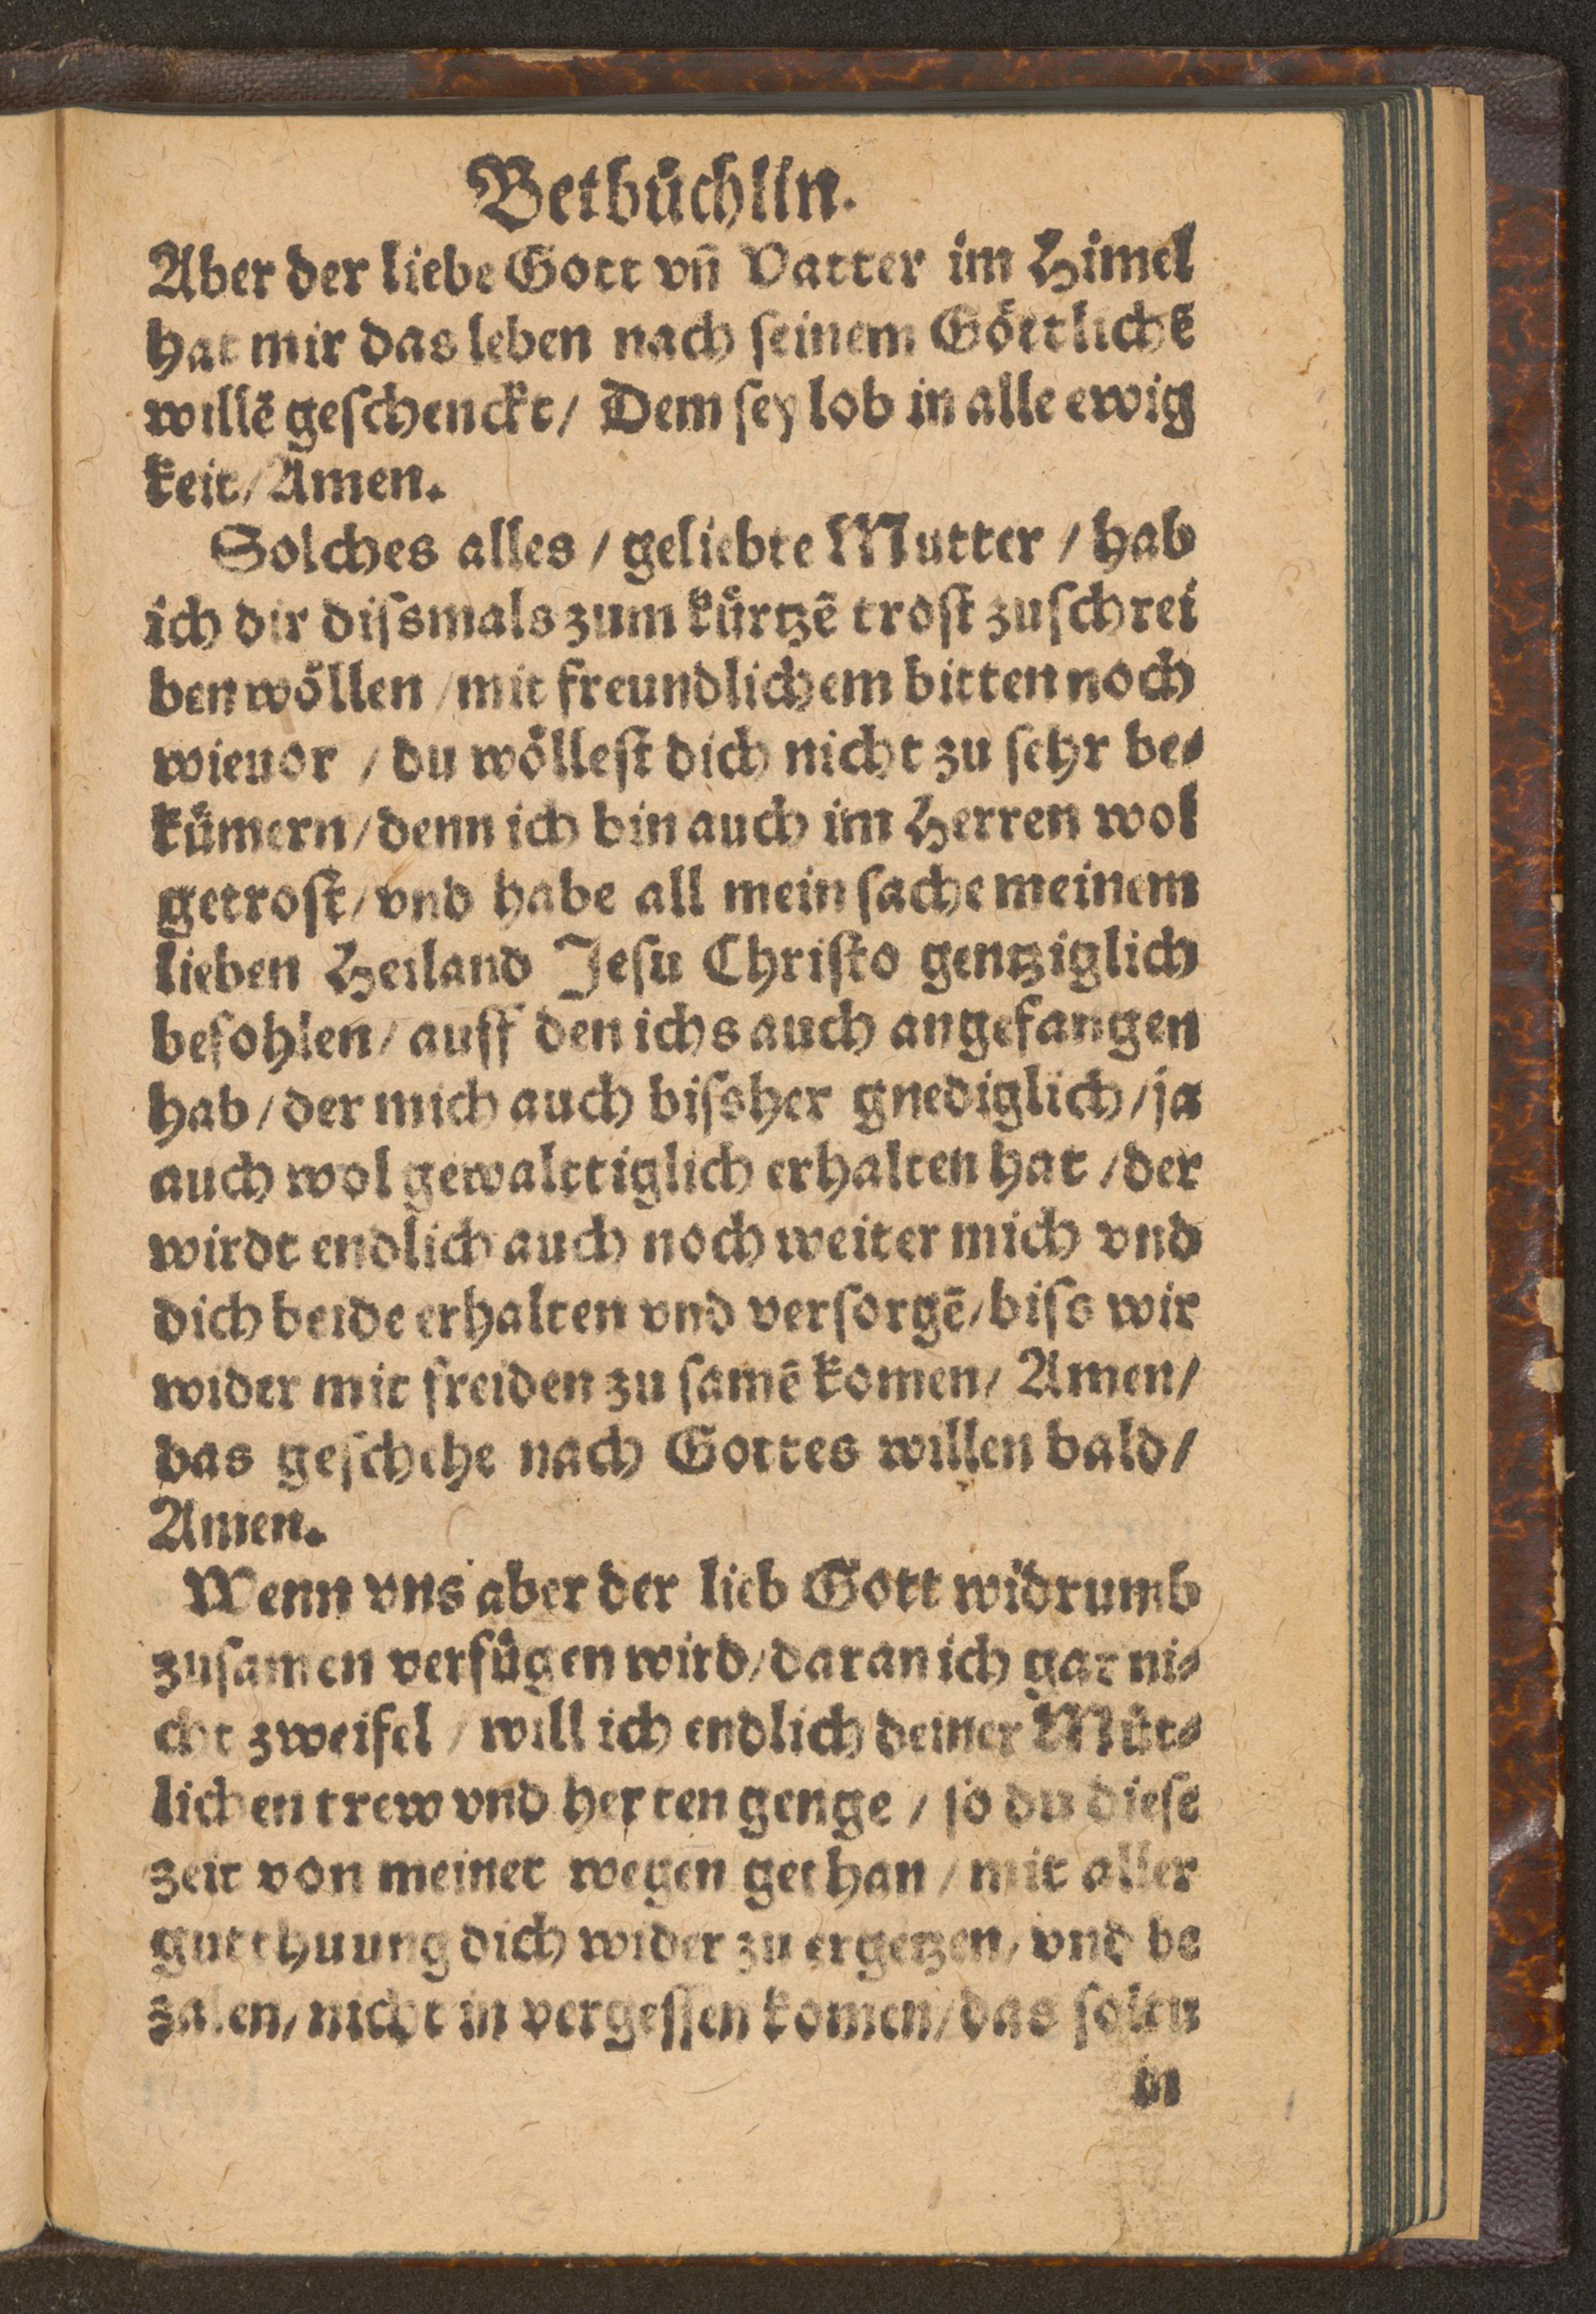 Betbüchlin.
Aber der liebe Gott vñ Vatter im Himel
hat mir das leben nach ſeinem Göttlichẽ
willẽ geſchenckt/ Dem ſey lob in alle ewig
keit/ Amen.
Solches alles / geliebte Mutter / hab
ich dir diſsmals zum kürtzẽ troſt zuſchrei
ben wöllen / mit freundlichem bitten noch
wieuor / du wölleſt dich nicht zu ſehr be⸗
kümern/ denn ich bin auch im Herren wol
getroſt/ vnd habe all mein ſache meinem
lieben Heiland Jeſu Chriſto gentziglich
befohlen/ auff den ichs auch angefangen
hab/ der mich auch biſsher gnediglich/ ja
auch wol gewalttiglich erhalten hat / der
wirdt endlich auch noch weiter mich vnd
dich beide erhalten vnd verſorgẽ/ biſs wir
wider mit freiden zu ſamẽ komen/ Amen/
das geſchehe nach Gottes willen bald/
Amen.
Wenn vns aber der lieb Gott widrumb
zuſamen verfügen wird/ daran ich gar ni⸗
cht zweifel / will ich endlich deiner Müt⸗
lichen trew vnd herten genge / ſo du dieſe
zeit von meinet wegen gethan / mit aller
gutthuung dich wider zu ergetzen/ vnd be
zalen/ nicht in vergeſſen komen/ das ſoltu
in